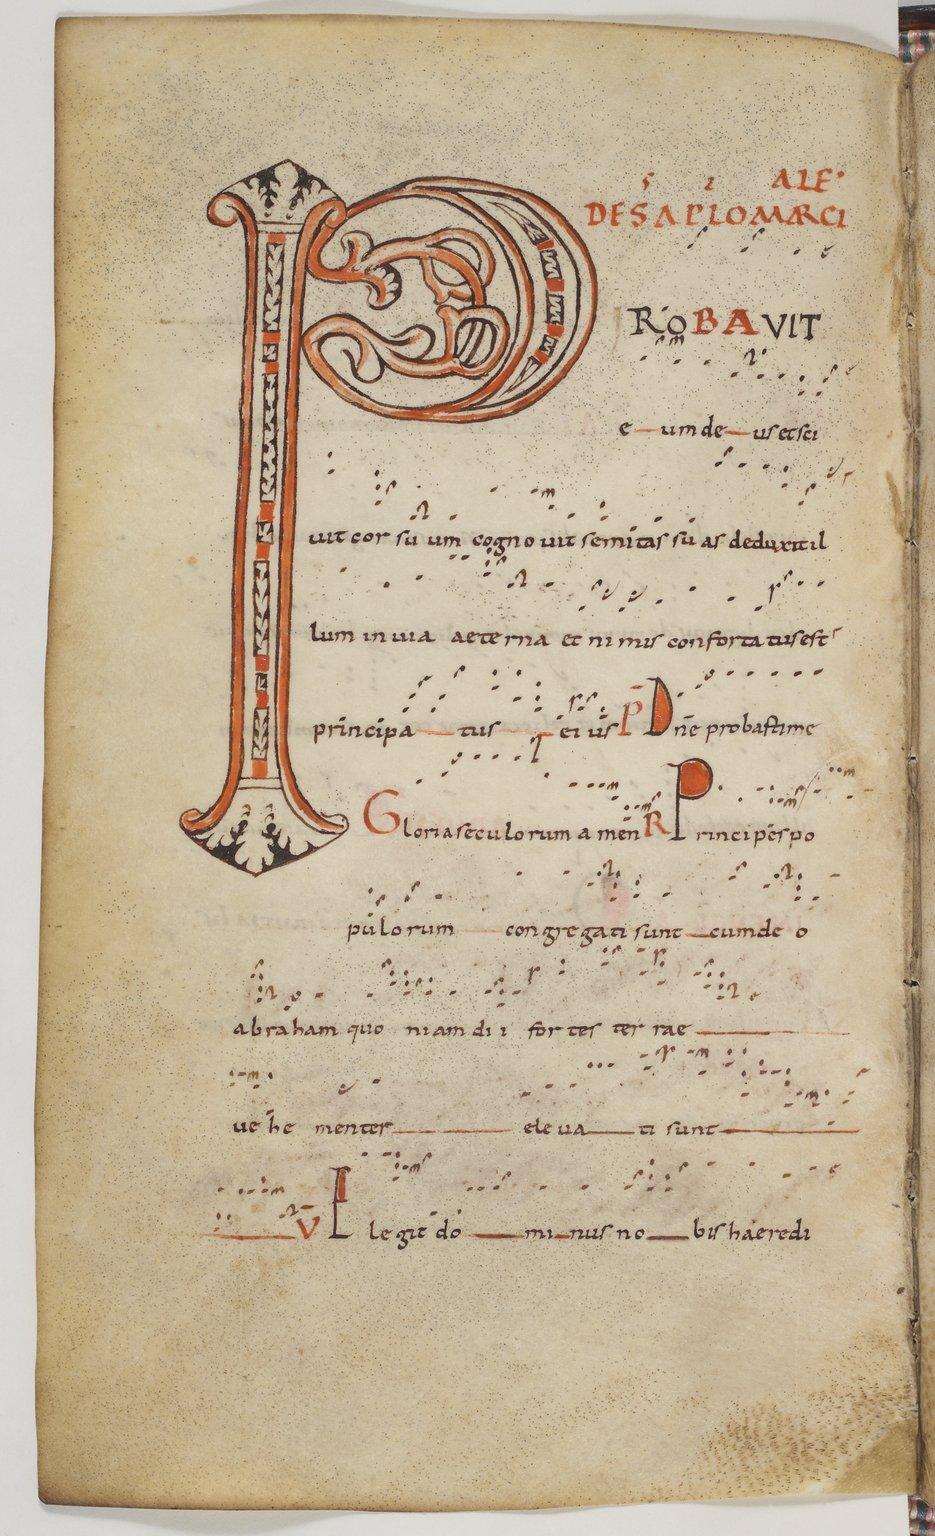 ALE·
DE SAPLO MARCI
PROBAVIT
e um de us et sci
uit cor su um cogno uit semitas su as deduxit il
lum in uia aeterna et ni mis conforta tus est
principa tus ei us P Dne probasti me
Gloria seculorum amen R Principes po
pulorum congregati sunt cum de o
abraham quo niam di i for tes ter rae
ue he menter ele ua ti sunt
V Elegit do mi nus no bis haeredi